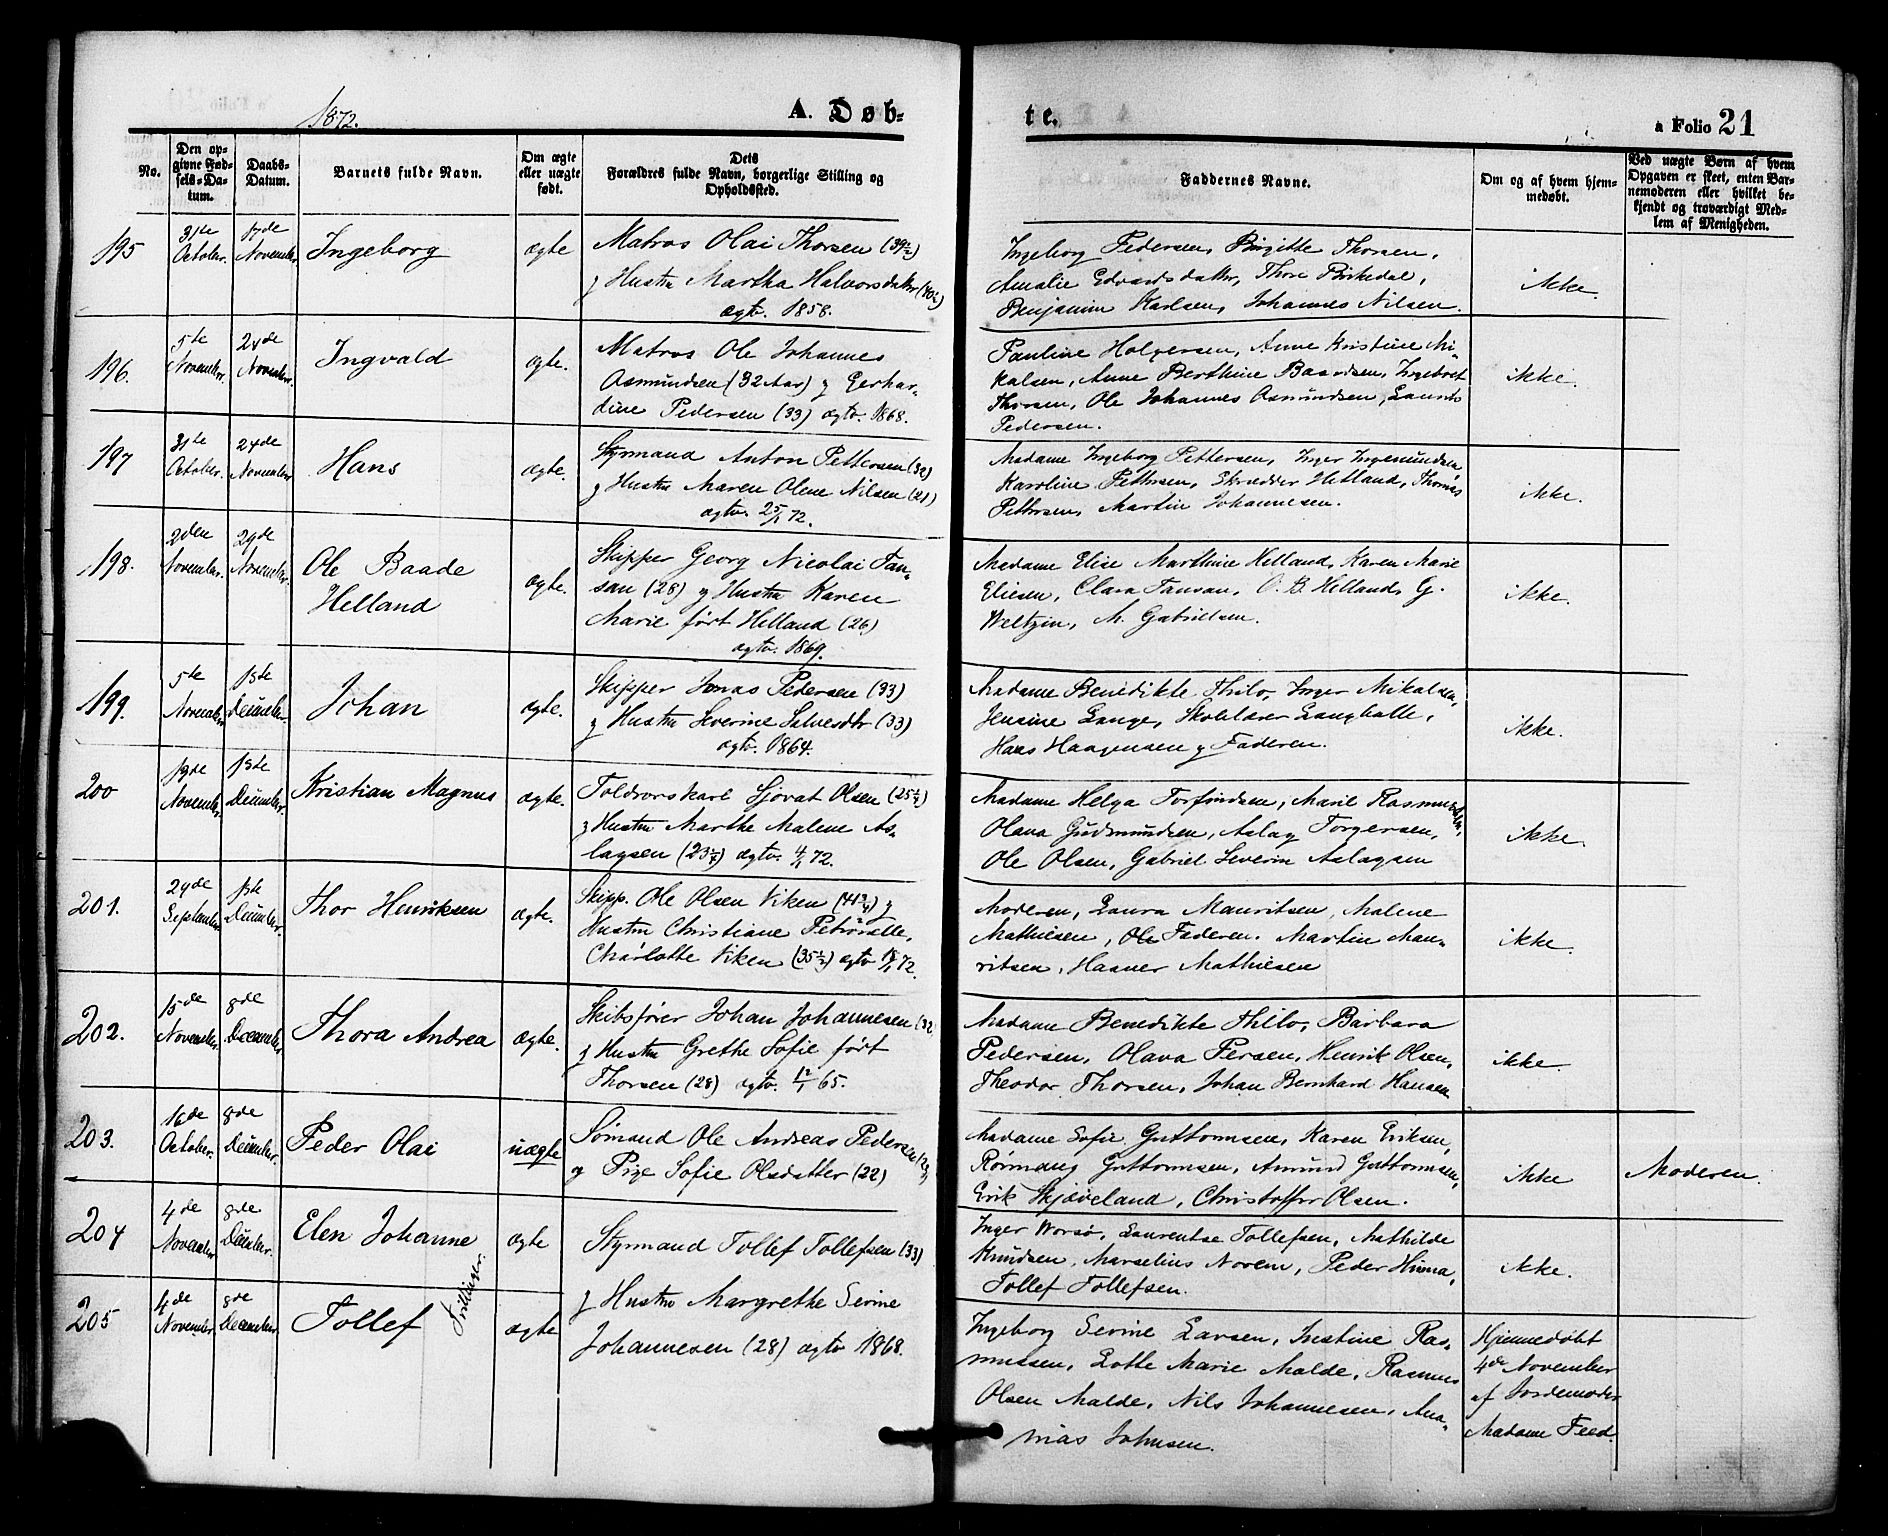 1872.
A. Døb-
te.
a Folio 21
No.
Den op-
givne Fød-
sels-Da-
tum.
Daabs-
Datum.
Barnets fulde Navn.
Om ægte
eller uægte
født.
Dets
Forældres fulde Navn, borgerlige Stilling og
Opholdssted.
Faddernes Navne.
Om og af hvem hjem-
medøbt.
Ved uægte Børn af hvem
Opgaven er skeet, enten Bar-
nemoderen eller hvilket be-
kjendt og troværdigt Med-
lem af Menigheden.
195
31te
October.
17de
November.
Ingeborg
ægte
Matros Olai Thorsen (39½)
og Hustru Martha Halvorsdatter (40½)
ægtv. 1858.
Ingeborg Pedersen, Birgitte Thorsen,
Amalie Edvardsdatter, Thore Birkedal,
Benjamin Karlsen, Johannes Nilsen.
ikke.
196.
5te
November.
24de
November.
Ingvald
ægte.
Matros Ole Johannes
Asmundsen (32 Aar) og Gerhar-
dine Pedersen (33) ægtv. 1868.
Pauline Holgersen, Anne Kristine Mi-
kalsen, Anne Berthine Baardsen, Ingebret
Thorsen, Ole Johannes Asmundsen, Laurits
Pedersen.
ikke.
197
31te
October.
24de
November
Hans
ægte.
Styrmand Anton Pettersen (32)
og Hustru Maren Olene Nilsen (21)
ægtv. 25/1 72.
Madame Ingeborg Pettersen, Inger Ingemundsen
Karoline Pettersen, Skrædder Helland, Thomas
Pettersen, Martin Johannesen.
ikke.
198.
2den
November.
24de
November.
Ole Baade
Helland
ægte.
Skipper Georg Nicolai Tan-
san (28) og Hustru Karen
Marie født Helland (26)
ægtv. 1869.
Madame Elise Marthine Helland, Karen Marie
Eliesen, Clara Tansan, O. B. Helland, G.
Weltzin, M. Gabrielsen.
ikke.
199.
5te
November
1ste
December.
Johan
ægte.
Skipper Jonas Pedersen (33)
og Hustru Severine Salvesdtr (33)
ægtv. 1864.
Madame Benedikte Thilo, Inger Mikalsen,
Jensine Lange, Skolelærer Langballe,
Hans Haagensen og Faderen.
ikke.
200
19de
November.
1ste
December.
Kristian Magnus
ægte.
Toldrorskarl Sjovat Olsen (25¼)
og Hustru Marthe Malene As-
lagsen (23¼) ægtv. 4/1 72.
Madame Helga Torfindsen, Marie Rasmussen,
Olava Gudmundsen, Aslag Torgersen,
Ole Olsen, Gabriel Severin Aslagsen
ikke.
201.
24de
September
1ste
December.
Thor Henriksen
ægte.
Skipp. Ole Olsen Viken (41¾) og
Hustru Christiane
Charlotte Viken (35½) ægtv 18/1 72.
Moderen, Laura Mauritsen, Malene
Mathiesen, Ole Faderen. Martin Mau-
ritsen, Haaver Mathiesen
ikke.
202.
15de
November.
8de
December
Thora Andrea
ægte.
Skibsfører Johan Johannesen (32
og Hustru Grethe Sofie født
Thorsen (28) ægtv. 12/1 65.
Madame Benedikte Thilo, Barbara
Pedersen, Olava Persen, Henrik Olsen,
Theodor Thorsen, Johan Bernhard Hansen
ikke.
203.
16de
October.
8de
December.
Peder Olai
uægte
Sømand Ole Andreas Pedersen
og Pige Sofie Olsdatter (22)
Madame Sofie Guttormsen, Karen Eriksen,
Guttormsen, Amund Guttormsen,
Erik Skjæveland, Christoffer Olsen.
ikke
Moderen.
204
4de
November
8de
December.
Elen Johanne
ægte
Styrmand Tollef Tollefsen (33)
Inger Worsø, Laurentse Tollefsen, Mathilde
Knudsen, Marselius Norem, Peder Hinna,
Tollef Tollefsen.
ikke.
205
4de
November.
8de
December
Tollef
Tvillinger.
ægte
og Hustru Margrethe Serine
Johannesen (28) ægtv 1868.
Ingeborg Serine Larsen, Justine Ras-
mussen, Lotte Marie Malde, Rasmus
Olsen Malde, Nils Johannesen, Ana-
nias Johnsen.
Hjemmedøbt
4de November
af Jordemoder
Madame Feed.